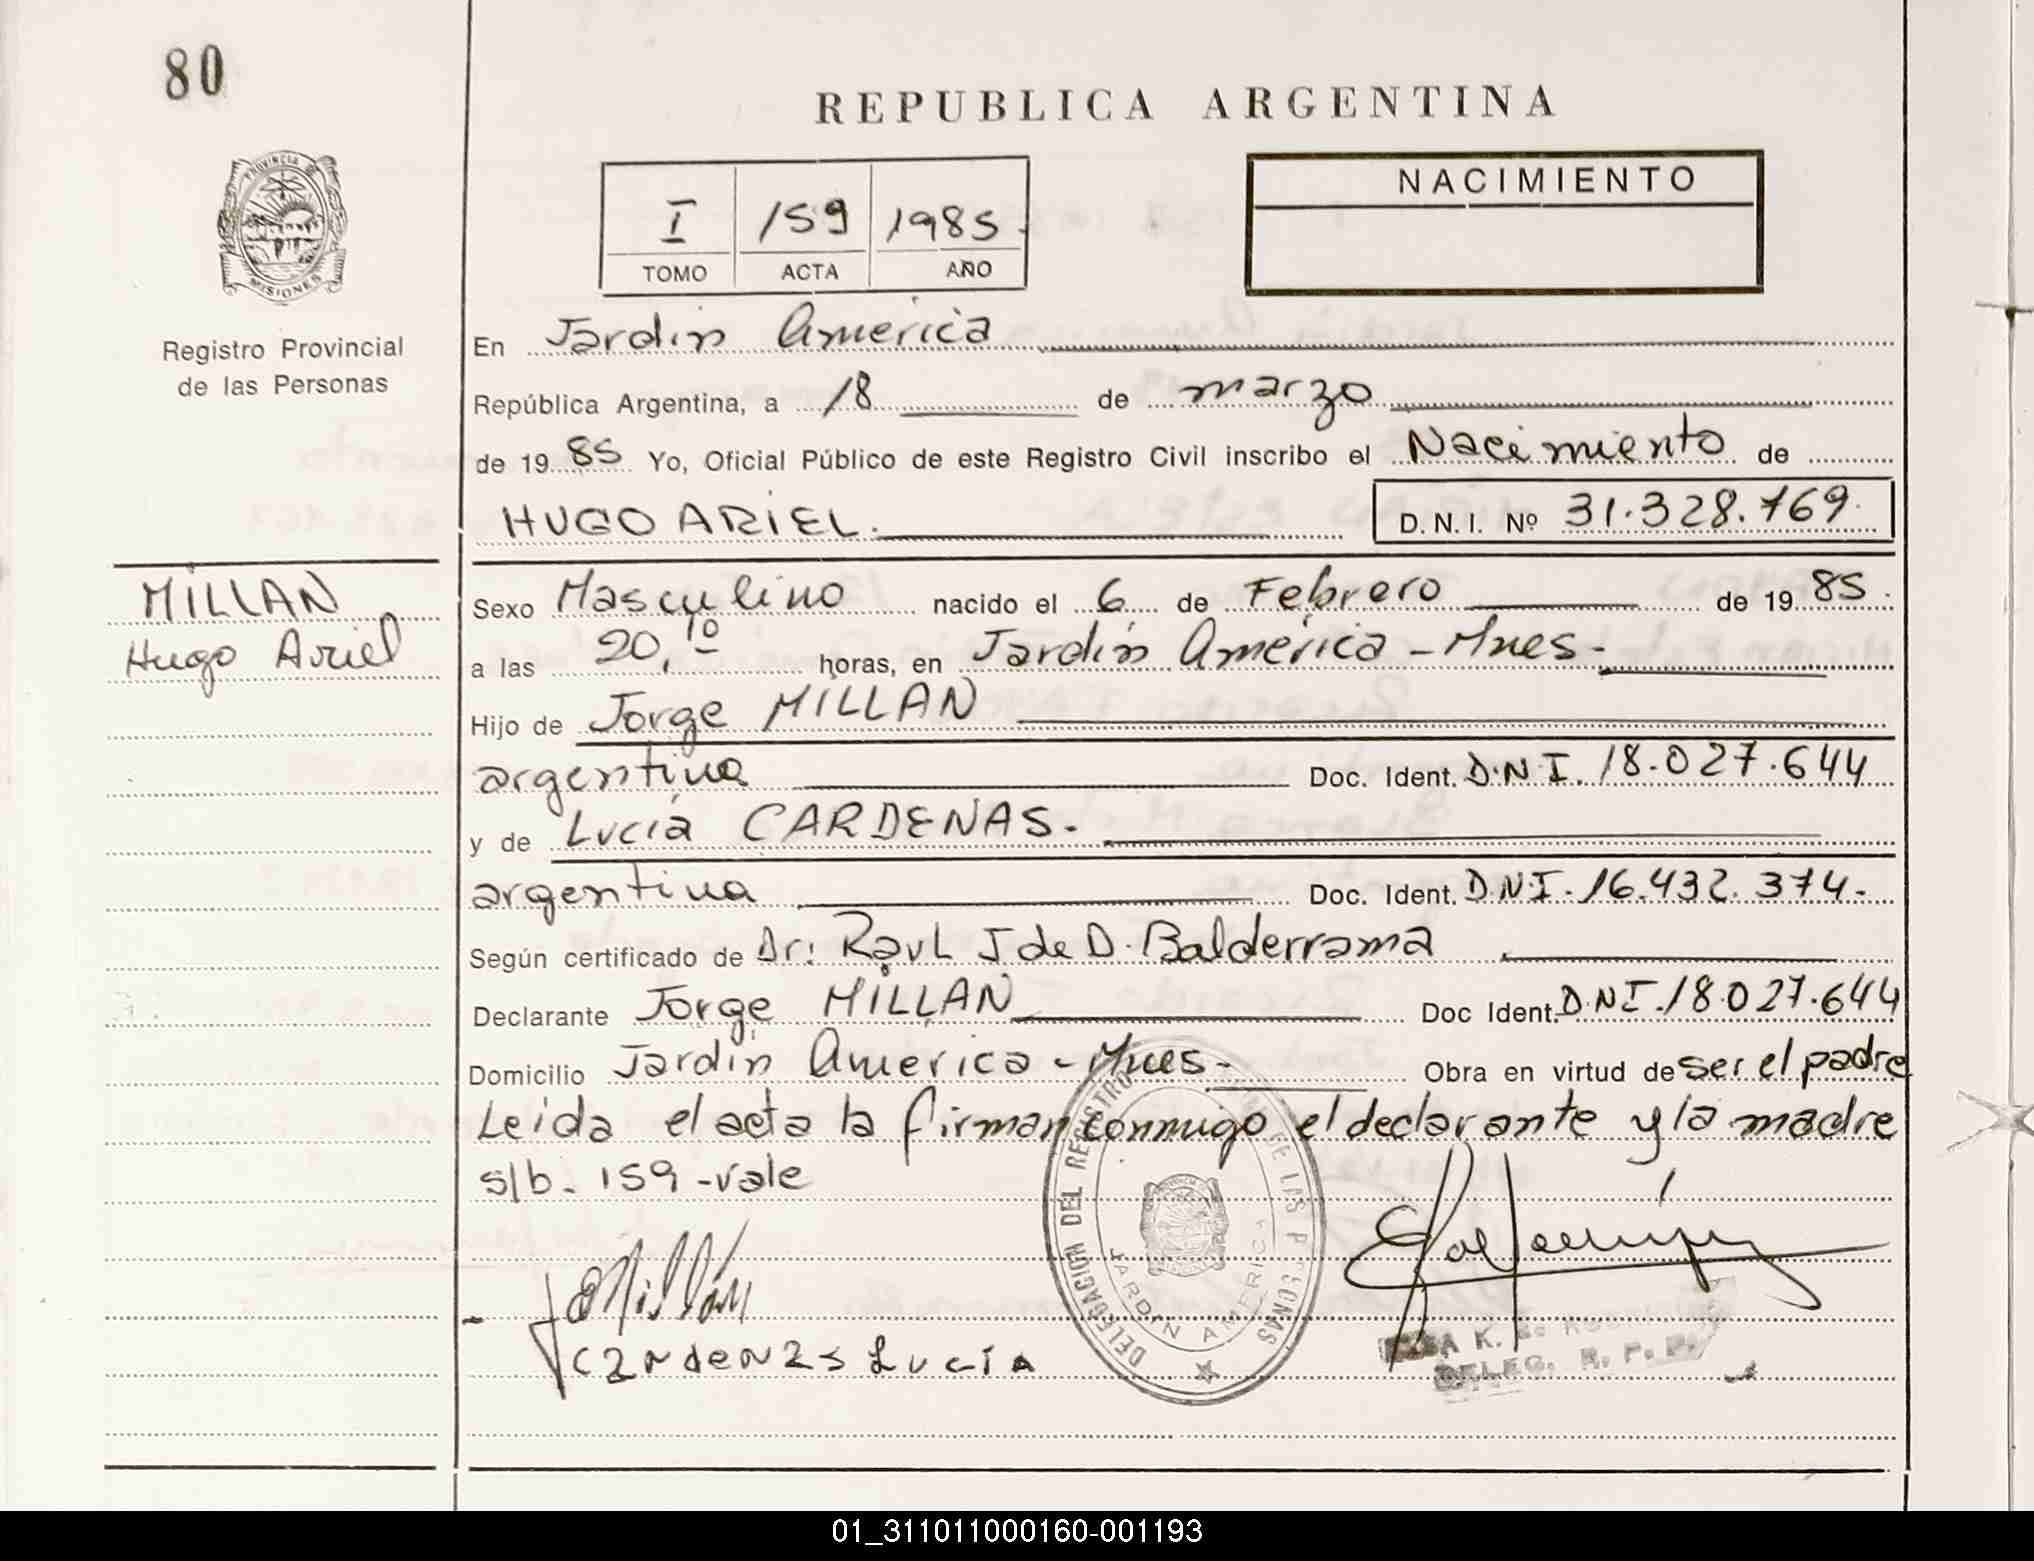 80
REPUBLICA ARGENTINA
PROVINCIA DE
MISIONES
Registro Provincial
de las Personas
I 159 1985
TOMO ACTA AÑO
NACIMIENTO
En Jardín América
República Argentina, a 18 de marzo
de 1985 Yo, Oficial Público de este Registro Civil inscribo el Nacimiento de
HUGO ARIEL. D.N.I. Nº 31.328.769.
MILLAN
Hugo Ariel
Sexo Masculino nacido el 6 de Febrero de 1985.
a las 20,10 horas, en Jardín América - Mnes-
Hijo de Jorge MILLAN
argentina Doc. Ident. D.N.I. 18.027.644
y de Lucía CARDENAS.
argentina Doc. Ident. D.N.I. 16.432.374-
Según certificado de Dr: Raul J de D. Balderrama
Declarante Jorge MILLAN Doc Ident. D.N.I. 18.027.644
Domicilio Jardín America - Mnes- Obra en virtud de ser el padre
Leida el acta la firman conmigo el declarante y la madre
s/b. 159 - vale
DELEGACION DEL REGISTRO DE LAS PERSONAS
JARDIN AMERICA
Millán
Cardenas Lucía
K.
DELEG. R. P. P.
01_311011000160-001193